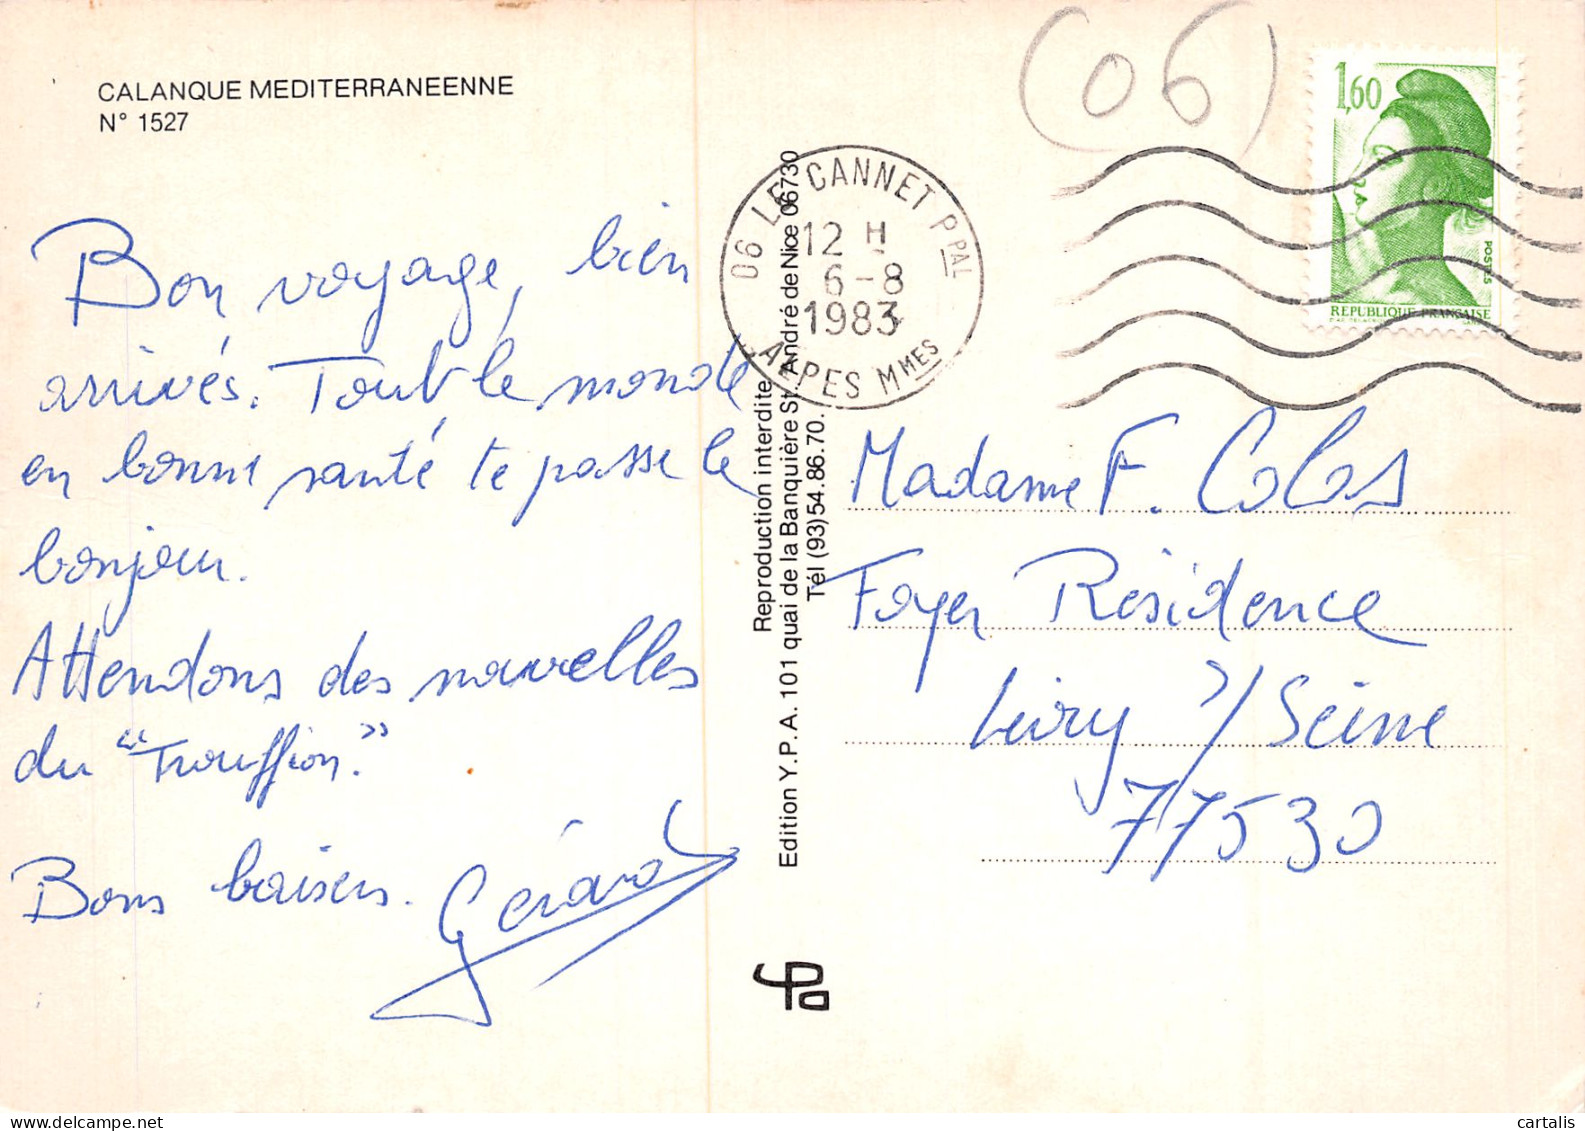 CALANQUE MEDITERRANEENNE
N° 1527
Bon voyage, bien
arrivés. Tout le monde
en bonne santé te passe le
bonjour.
Attendons des nouvelles
du "Trouffion."
Bons baisers. Gérard
Reproduction interdite
Edition Y.P.A. 101 quai de la Banquière St. André de Nice 06730
Tél (93)54.86.70.
(06)
06 LE CANNET PPAL
12 H
6-8
1983
ALPES MMES
1,60
POSTES
REPUBLIQUE FRANÇAISE
Madame F. Colas
Foyer Résidence
Livry s/Seine
77530
cartalis